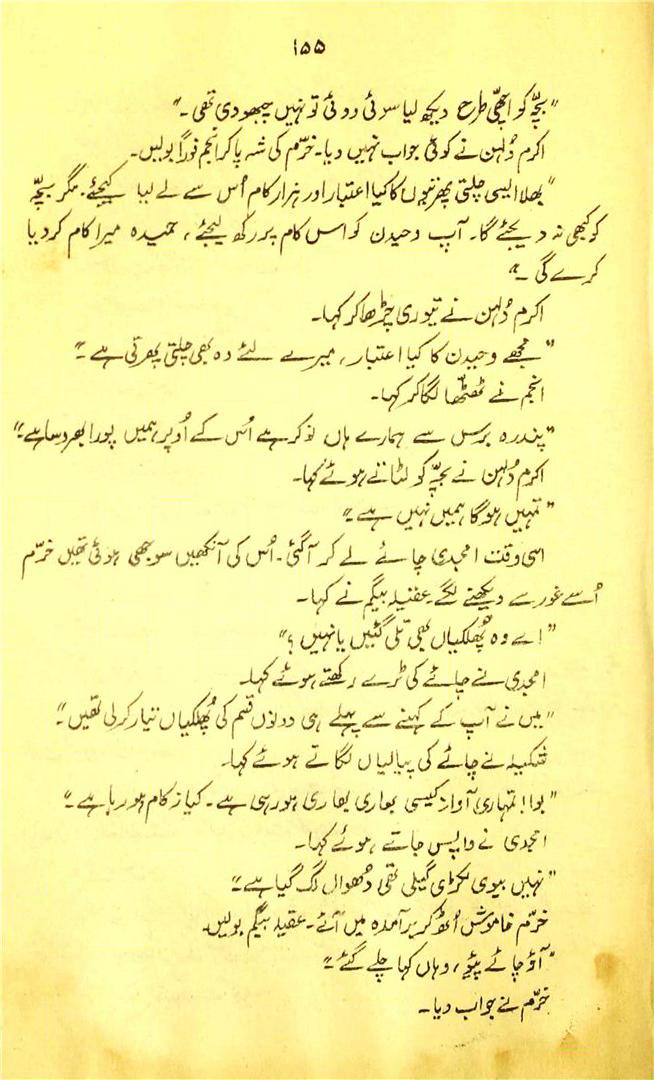 ۱۵۵
"بچّے کو اچھی طرح دیکھ لیا سوئی ووئی تو نہیں چبھو دی تھی۔"
اکرم دُلہن نے کوئی جواب نہیں دیا۔ خرّم کی شہ پا کر انجم فوراً بولیں۔
"بھلا ایسی چلتی پھرتیوں کا کیا اعتبار اور ہزار کام اُس سے لے لیا کیجئے۔ مگر بچّے
کو کبھی نہ دیجئے گا۔ آپ وحیدن کو اس کام پر رکھ لیجئے، حمیدہ میرا کام کر دیا
کرے گی۔"
اکرم دُلہن نے تیوری چڑھا کر کہا۔
"مجھے وحیدن کا کیا اعتبار، میرے لئے وہ بھی چلتی پھرتی ہے۔"
انجم نے ٹھٹھا لگا کر کہا۔
"پندرہ برس سے ہمارے ہاں نوکر ہے اُس کے اُوپر ہمیں پورا بھروسا ہے۔"
اکرم دُلہن نے بچّے کو لٹاتے ہوئے کہا۔
"تمہیں ہوگا ہمیں نہیں ہے۔"
اسی وقت امجدی چائے لے کر آ گئی۔ اُس کی آنکھیں سوجھی ہوئی تھیں خرّم
اُسے غور سے دیکھنے لگے۔ عقیلہ بیگم نے کہا۔
"اے وہ پُھلکیاں بھی تلی گئیں یا نہیں؟"
امجدی نے چائے کی ٹرے رکھتے ہوئے کہا۔
"میں نے آپ کے کہنے سے پہلے ہی دونوں قسم کی پُھلکیاں تیار کر لی تھیں۔"
شکیلہ نے چائے کی پیالیاں لگاتے ہوئے کہا۔
"بوا! تمہاری آواز کیسی بھاری بھاری ہو رہی ہے۔ کیا زکام ہو رہا ہے۔"
امجدی نے واپس جاتے ہوئے کہا۔
"نہیں بیوی لکڑی گیلی تھی دُھواں لگ گیا ہے۔"
خرّم خاموش اُٹھ کر برآمدہ میں آئے۔ عقیلہ بیگم بولیں۔
"آؤ چائے پیئو، وہاں کہا چلے گئے۔"
خرّم نے جواب دیا۔